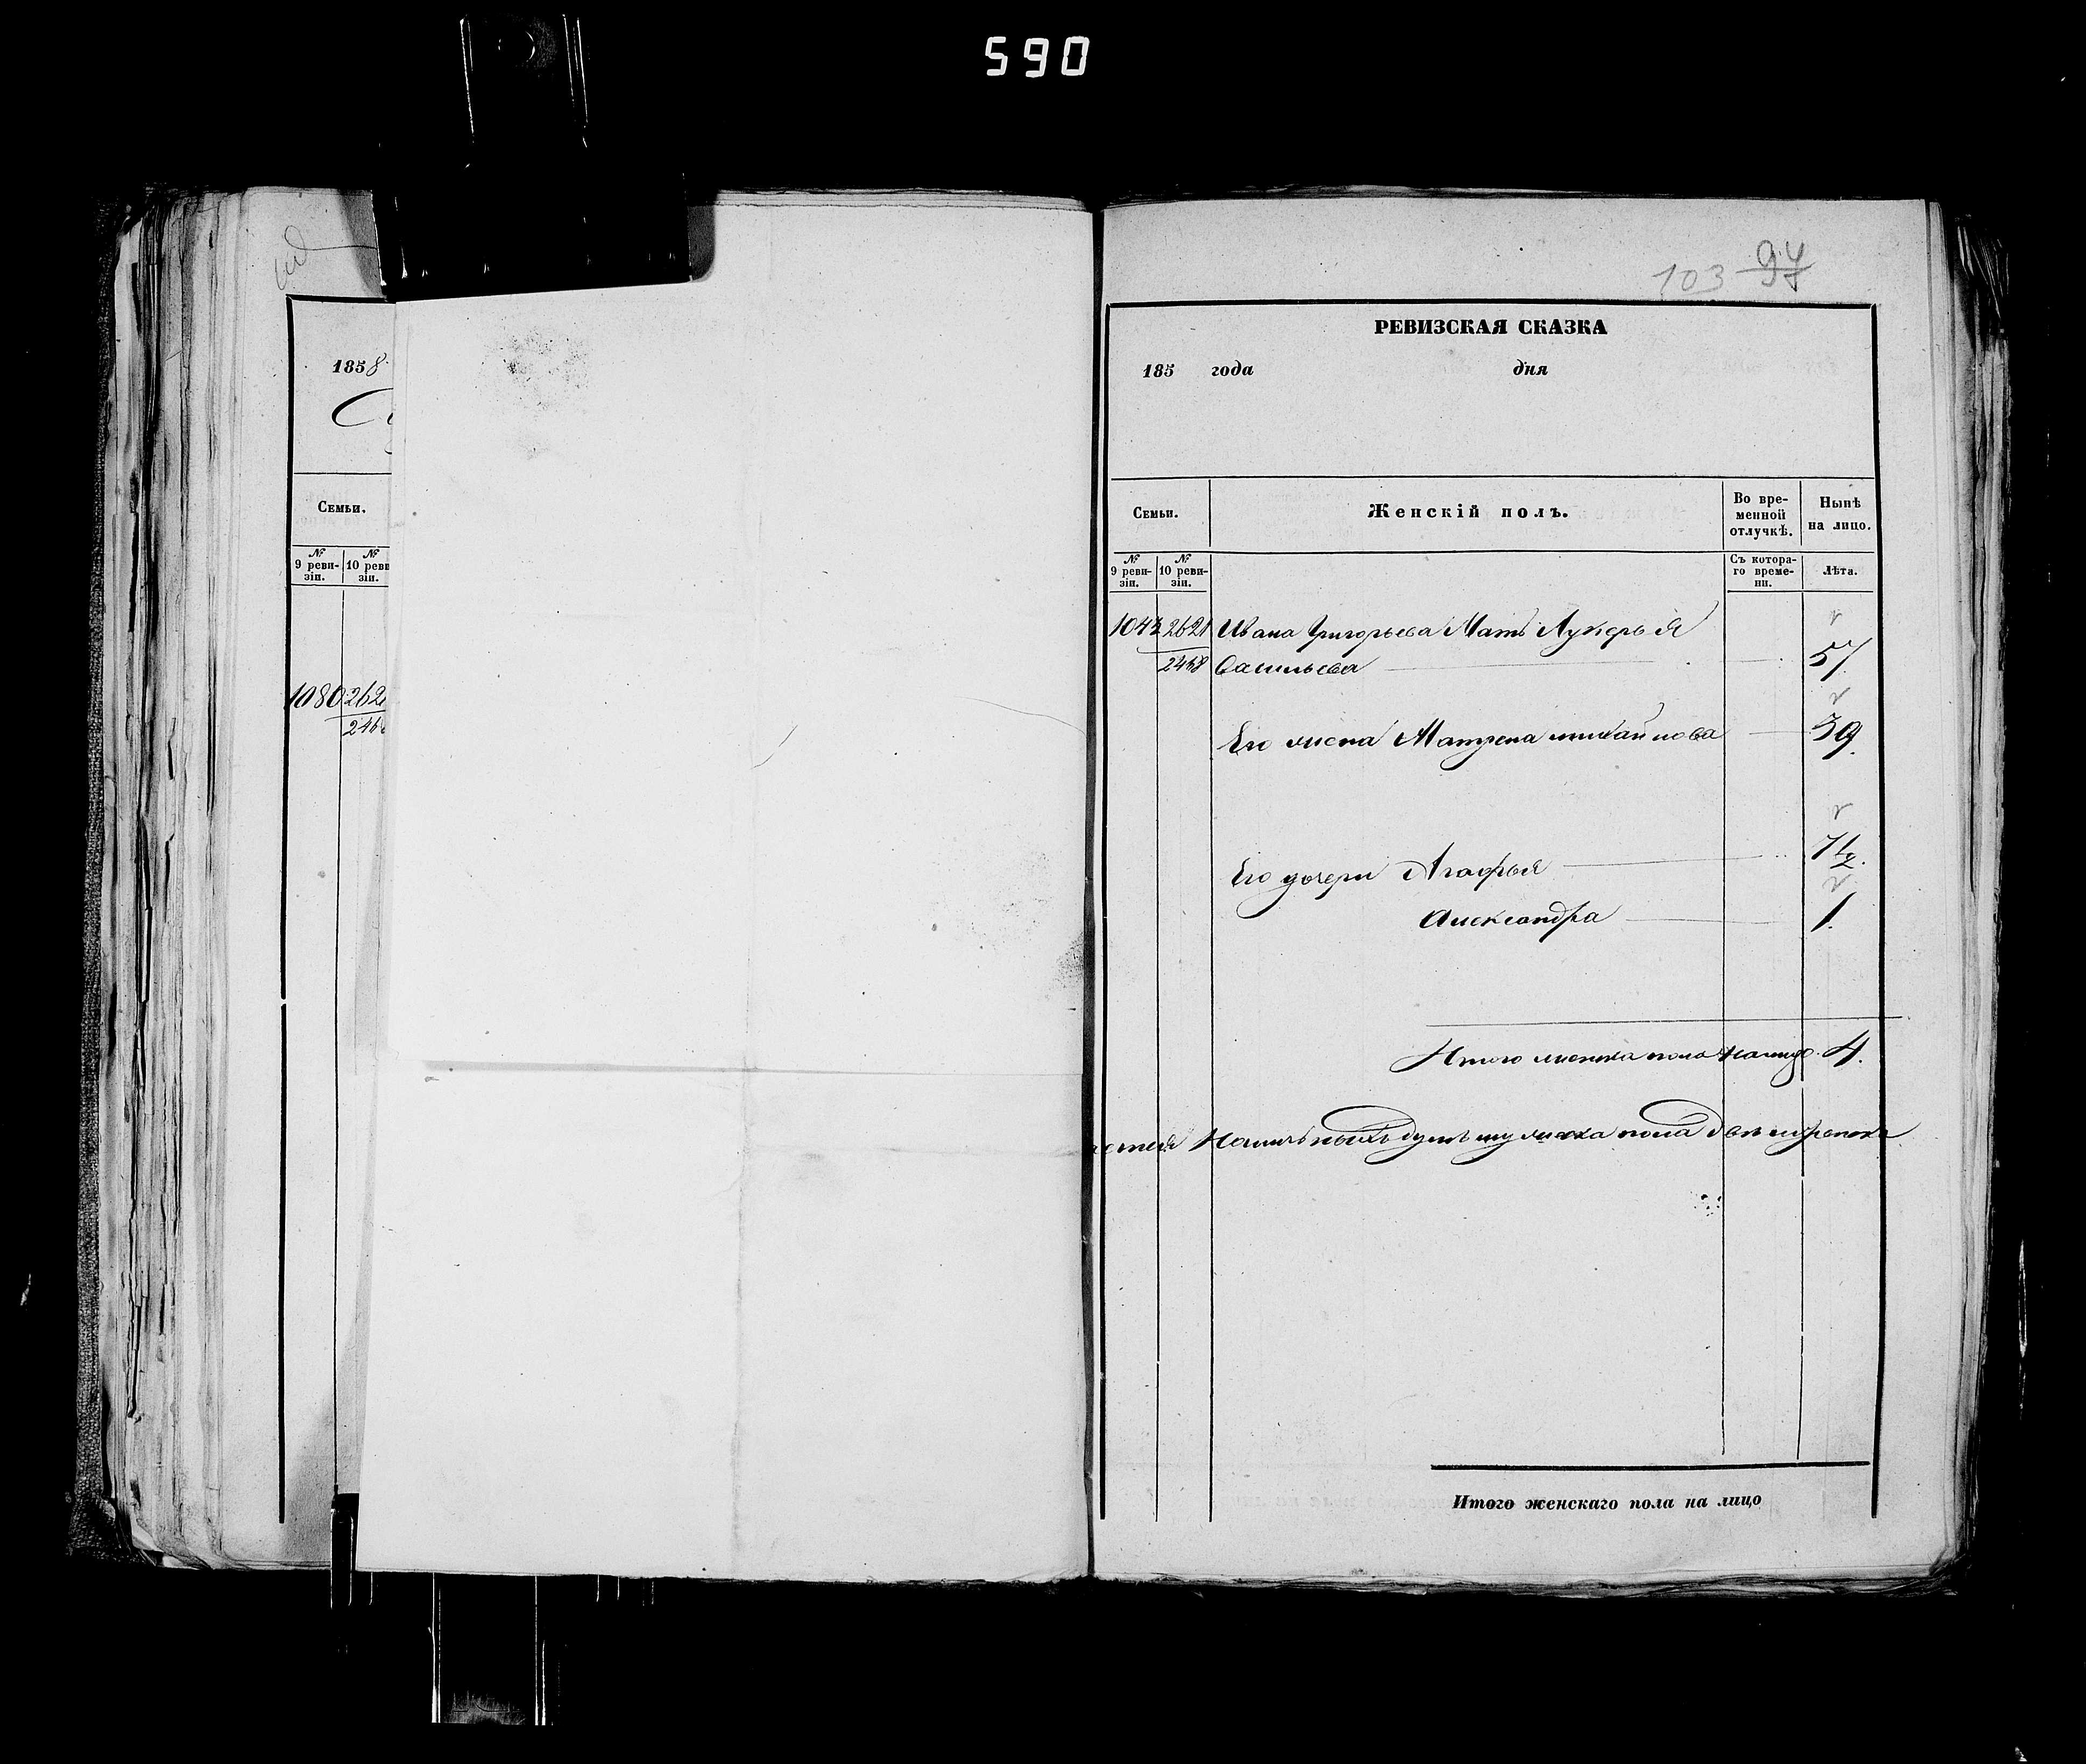 590
1858
Семьи.
№ 9 ревизіи.
№ 10 реви
1080
103 97
94
РЕВИЗСКАЯ СКАЗКА
185 года дня
Семьи.
Женскій полъ.
Во временной отлучкѣ.
Нынѣ на лицо.
№ 9 ревизіи.
№ 10 ревизіи.
Съ котораго времени.
Лѣта.
2621 Ивана Григорьева Мать Лукерья
2468 Васильева 57
Его жена Матрена Михайлова 39.
Его дочери Агафья 7½.
Александра 1.
Итого женска пола налицо. 4.
душъ мужеска пола
Итого женскаго пола на лицо